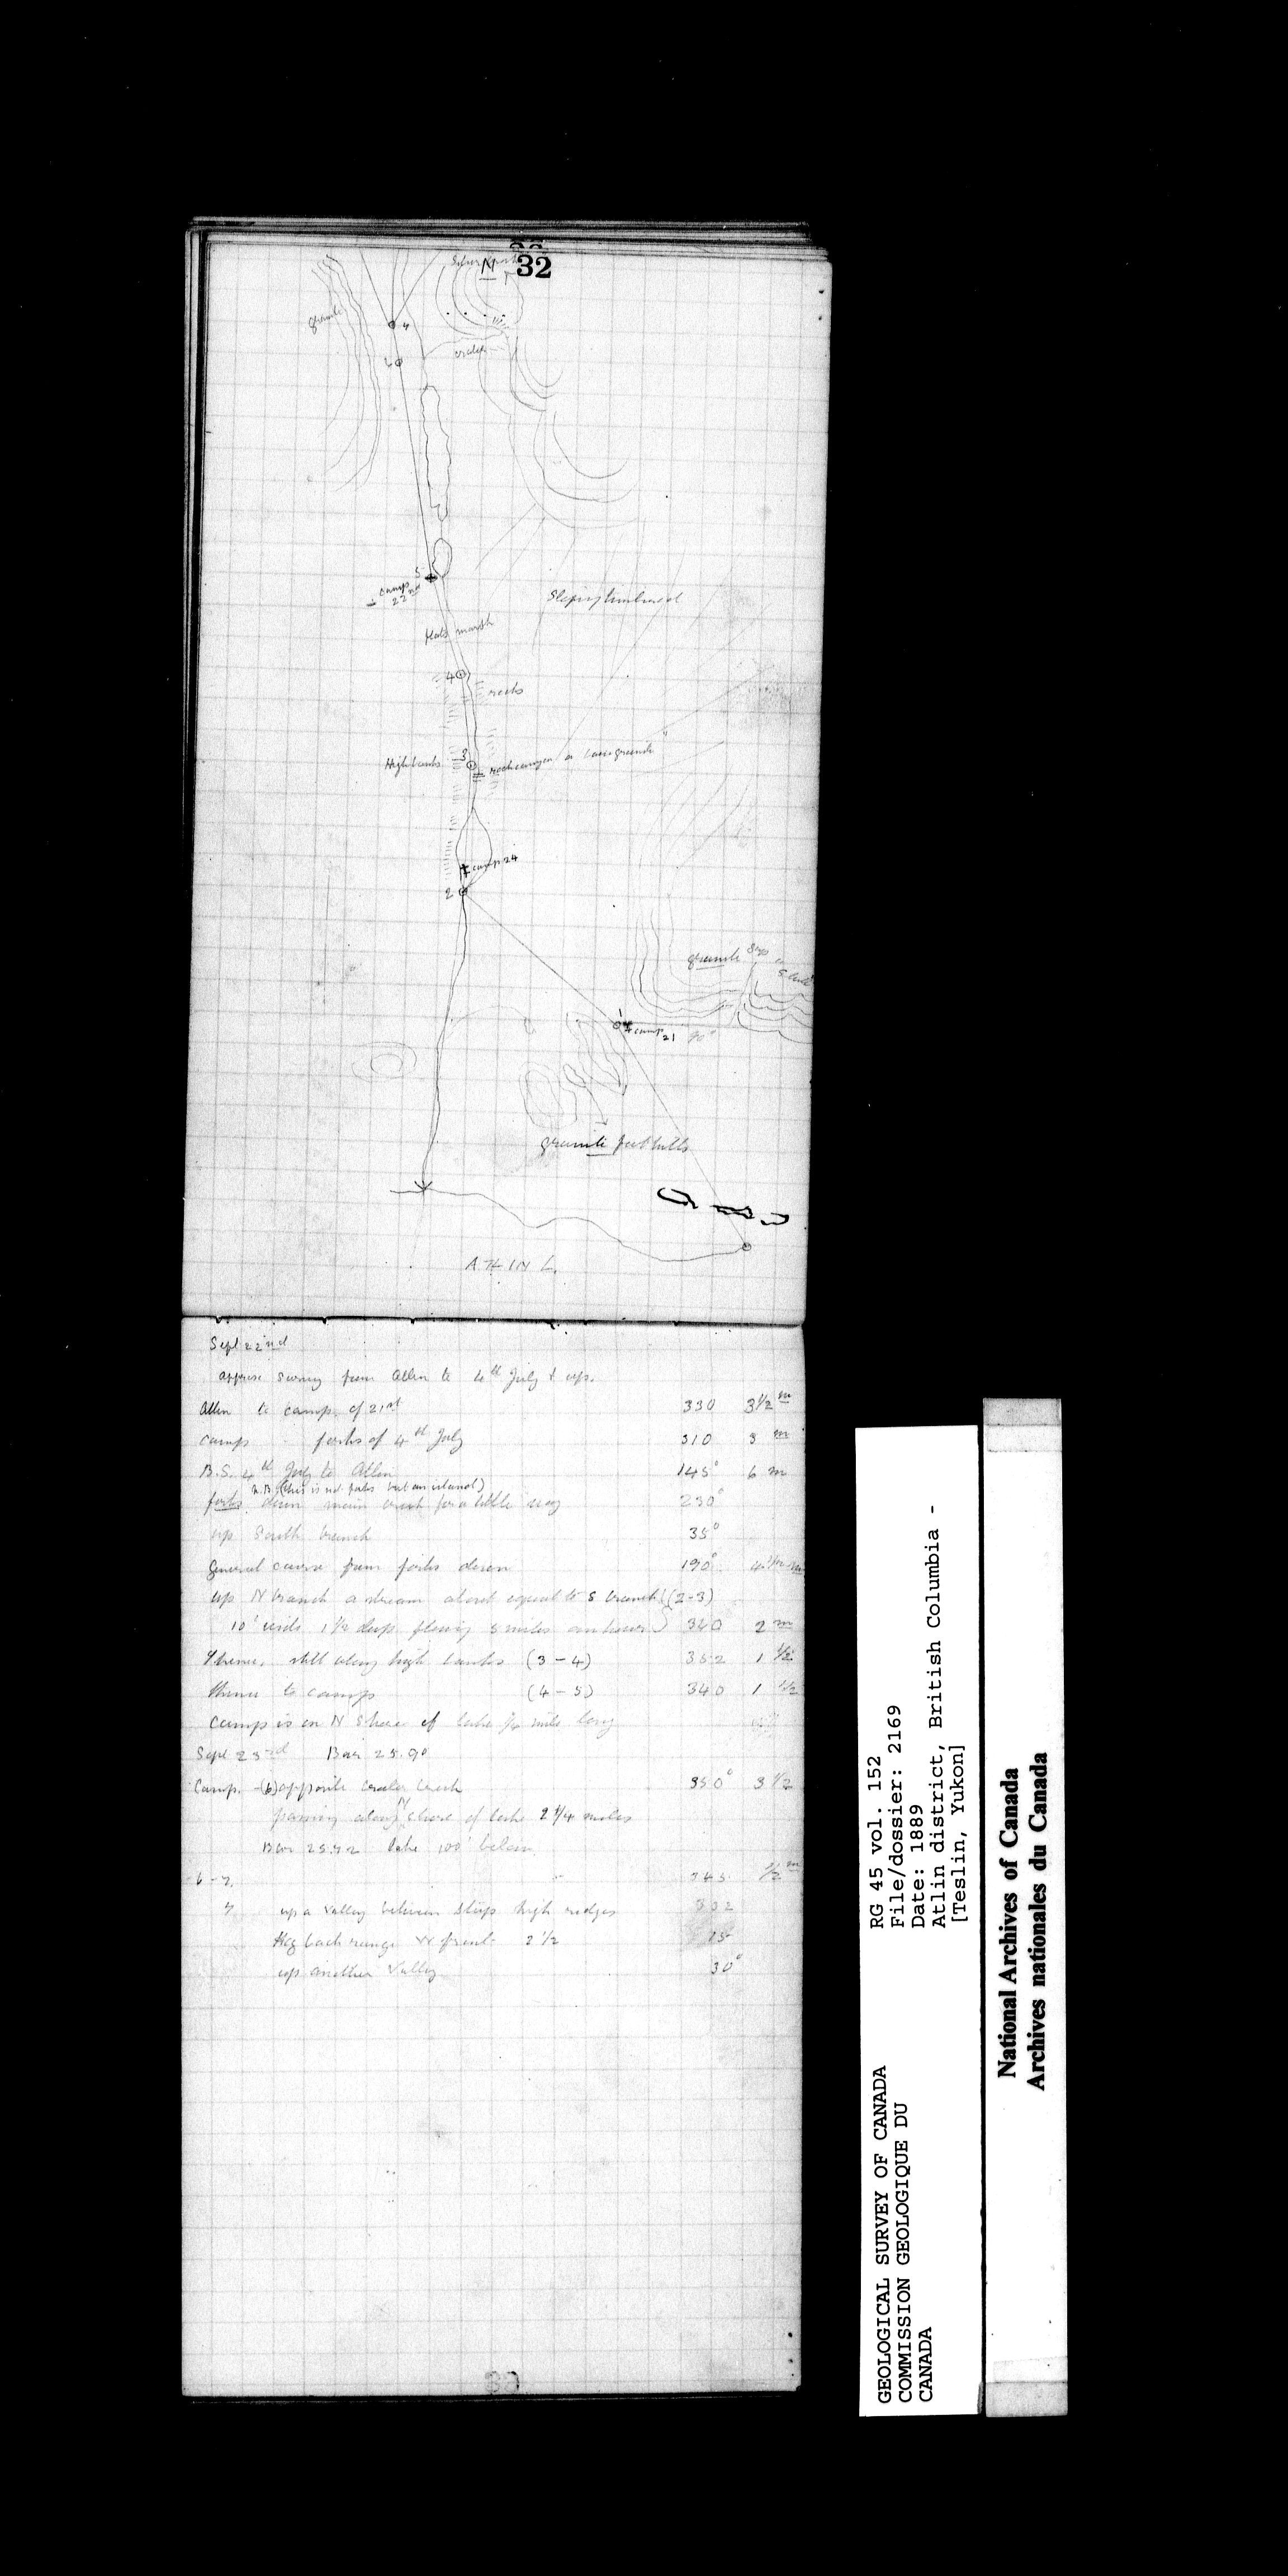 N 32
granite
4
6
creek
5
camp
22nd
flats marsh
Sloping timbered
4
rocks
High banks
3
rock canyon
camp 24
2
granite
1
camp 21
90°
granite foot hills
ATLIN L.
Sept 22nd
approx survey from Atlin to 4th July & up.
Atlin to camp of 21st 330 3 1/2 m
camp forks of 4th July 310 3 m
B.S. 4th July to Atlin 145° 6 m
N.B. (this is not forks but an island)
forks down main creek for a little way 230°
up South branch 35°
General course from forks down 190°
up N branch a stream about equal to S branch (2-3)
10' wide 1 1/2 deep flowing 5 miles an hour) 340 2 m
Thence, still along high banks (3-4) 352 1 1/2
thence to camp (4-5) 340 1 1/2
Camp is on N Shore of lake 1/4 mile long
Sept 23rd Bar 25.90
Camp - (6) opposite creek 350° 3 1/2
passing along N shore of lake 2 1/4 miles
Bar 25.72 lake 100' below
6-7. 345 1/2 m
7 up a valley between steep high ridges 302
front 2 1/2 15
up another valley 30°
RG 45 vol. 152
File/dossier: 2169
Date: 1889
Atlin district, British Columbia -
[Teslin, Yukon]
GEOLOGICAL SURVEY OF CANADA
COMMISSION GEOLOGIQUE DU
CANADA
National Archives of Canada
Archives nationales du Canada